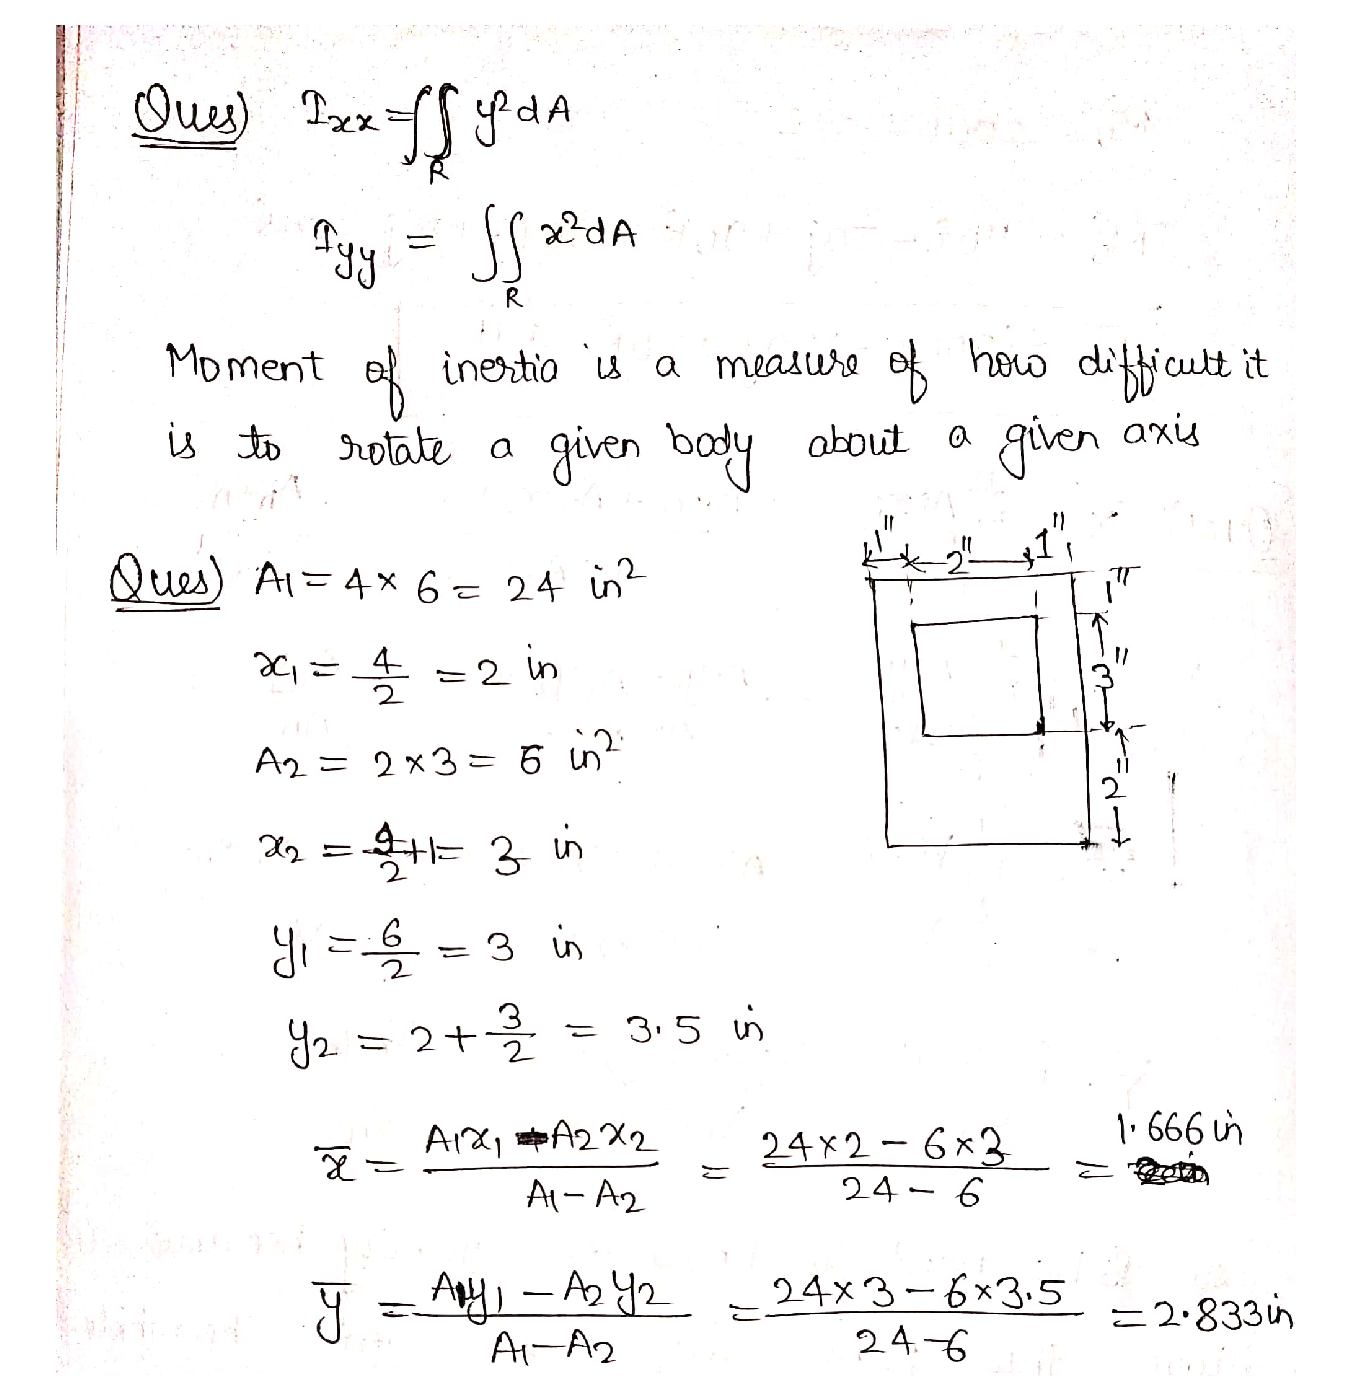 Ques) Ixx = ∬ y²dA
R
Iyy = ∬ x²dA
R
Moment of inertia is a measure of how difficult it
is to rotate a given body about a given axis
1" 2" 1"
1"
3"
2"
Ques) A1 = 4 × 6 = 24 in²
x1 = 4/2 = 2 in
A2 = 2 × 3 = 6 in²
x2 = /2 + 1 = 3 in
y1 = 6/2 = 3 in
y2 = 2 + 3/2 = 3.5 in
x̄ = A1x1 A2x2 / A1 - A2 = 24×2 - 6×3 / 24 - 6 = 1.666 in
ȳ = A1y1 - A2y2 / A1 - A2 = 24×3 - 6×3.5 / 24 - 6 = 2.833 in